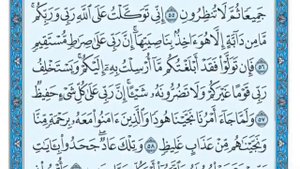 جَمِيعًا ثُمَّ لَا تُنظِرُونِ ۝٥٥ إِنِّي تَوَكَّلْتُ عَلَى ٱللَّهِ رَبِّي وَرَبِّكُم
مَّا مِن دَآبَّةٍ إِلَّا هُوَ ءَاخِذُۢ بِنَاصِيَتِهَآۚ إِنَّ رَبِّي عَلَىٰ صِرَٰطٍ مُّسْتَقِيمٍ
۝٥٦ فَإِن تَوَلَّوْا۟ فَقَدْ أَبْلَغْتُكُم مَّآ أُرْسِلْتُ بِهِۦٓ إِلَيْكُمْۚ وَيَسْتَخْلِفُ
رَبِّي قَوْمًا غَيْرَكُمْ وَلَا تَضُرُّونَهُۥ شَيْـًٔاۚ إِنَّ رَبِّي عَلَىٰ كُلِّ شَيْءٍ حَفِيظٌ
۝٥٧ وَلَمَّا جَآءَ أَمْرُنَا نَجَّيْنَا هُودًا وَٱلَّذِينَ ءَامَنُوا۟ مَعَهُۥ بِرَحْمَةٍ مِّنَّا
وَنَجَّيْنَٰهُم مِّنْ عَذَابٍ غَلِيظٍ ۝٥٨ وَتِلْكَ عَادٌۖ جَحَدُوا۟ بِـَٔايَٰتِ